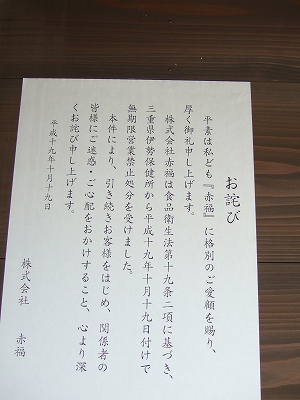 お詫び
平素は私ども『赤福』に格別のご愛顧を賜り、
厚く御礼申し上げます。
株式会社赤福は食品衛生法第十九条二項に基づき、
三重県伊勢保健所から平成十九年十月十九日付けで
無期限営業禁止処分を受けました。
本件により、引き続きお客様をはじめ、関係者の
皆様にご迷惑・ご心配をおかけすること、心より深
くお詫び申し上げます。
平成十九年十月十九日
株式会社 赤福